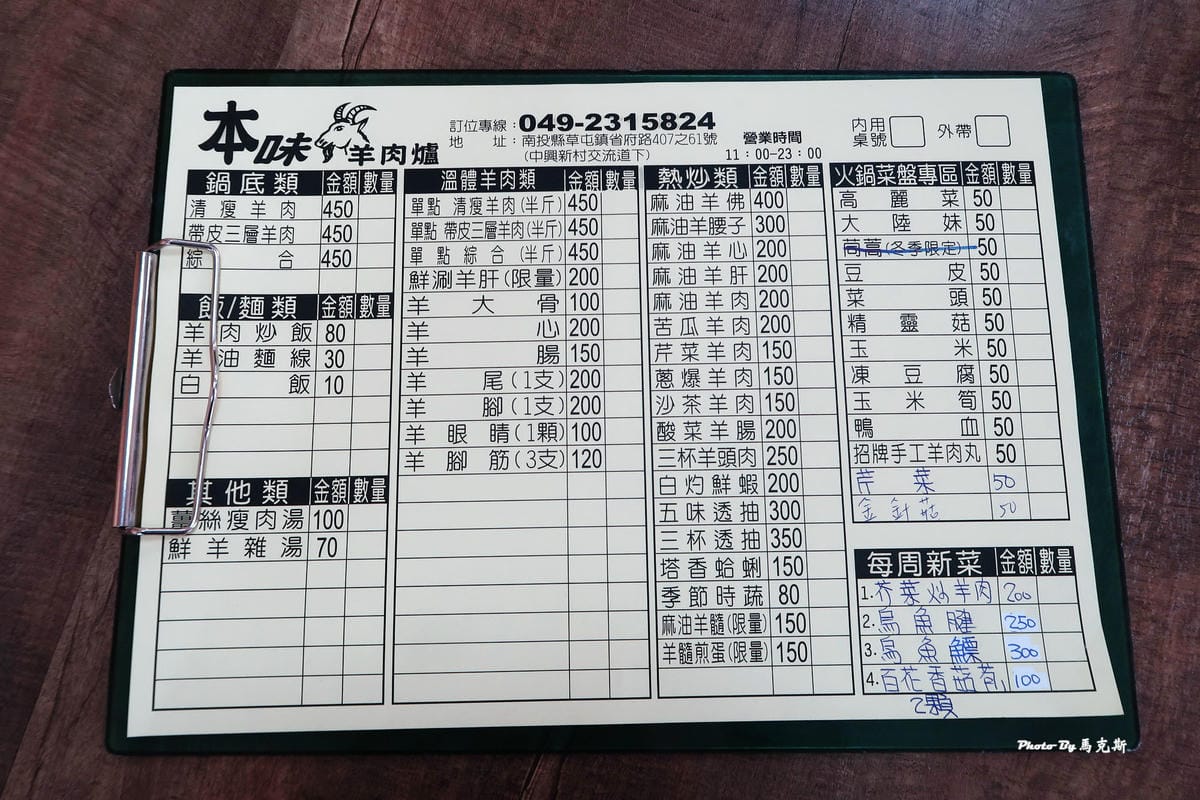 本味羊肉爐
訂位專線：049-2315824
地 址：南投縣草屯鎮省府路407之61號
（中興新村交流道下）
營業時間
11：00-23：00
內用
桌號
外帶
鍋底類 金額 數量
清瘦羊肉 450
帶皮三層羊肉 450
綜合 450
飯/麵類 金額 數量
羊肉炒飯 80
羊油麵線 30
白飯 10
其他類 金額 數量
薑絲瘦肉湯 100
鮮羊雜湯 70
溫體羊肉類 金額 數量
單點 清瘦羊肉(半斤) 450
單點 帶皮三層羊肉(半斤) 450
單點綜合(半斤) 450
鮮涮羊肝(限量) 200
羊大骨 100
羊心 200
羊腸 150
羊尾(1支) 200
羊腳(1支) 200
羊眼睛(1顆) 100
羊腳筋(3支) 120
熱炒類 金額 數量
麻油羊佛 400
麻油羊腰子 300
麻油羊心 200
麻油羊肝 200
麻油羊肉 200
苦瓜羊肉 200
芹菜羊肉 150
蔥爆羊肉 150
沙茶羊肉 150
酸菜羊腸 200
三杯羊頭肉 250
白灼鮮蝦 200
五味透抽 300
三杯透抽 350
塔香蛤蜊 150
季節時蔬 80
麻油羊髓(限量) 150
羊髓煎蛋(限量) 150
火鍋菜盤專區 金額 數量
高麗菜 50
大陸妹 50
茼蒿(冬季限定) 50
豆皮 50
菜頭 50
精靈菇 50
玉米 50
凍豆腐 50
玉米筍 50
鴨血 50
招牌手工羊肉丸 50
芹菜 50
金針菇 50
每周新菜 金額 數量
1.芥菜炒羊肉 200
2.烏魚腱 250
3.烏魚鰾 300
4.百花香菇 100
2顆
Photo By 馬克斯